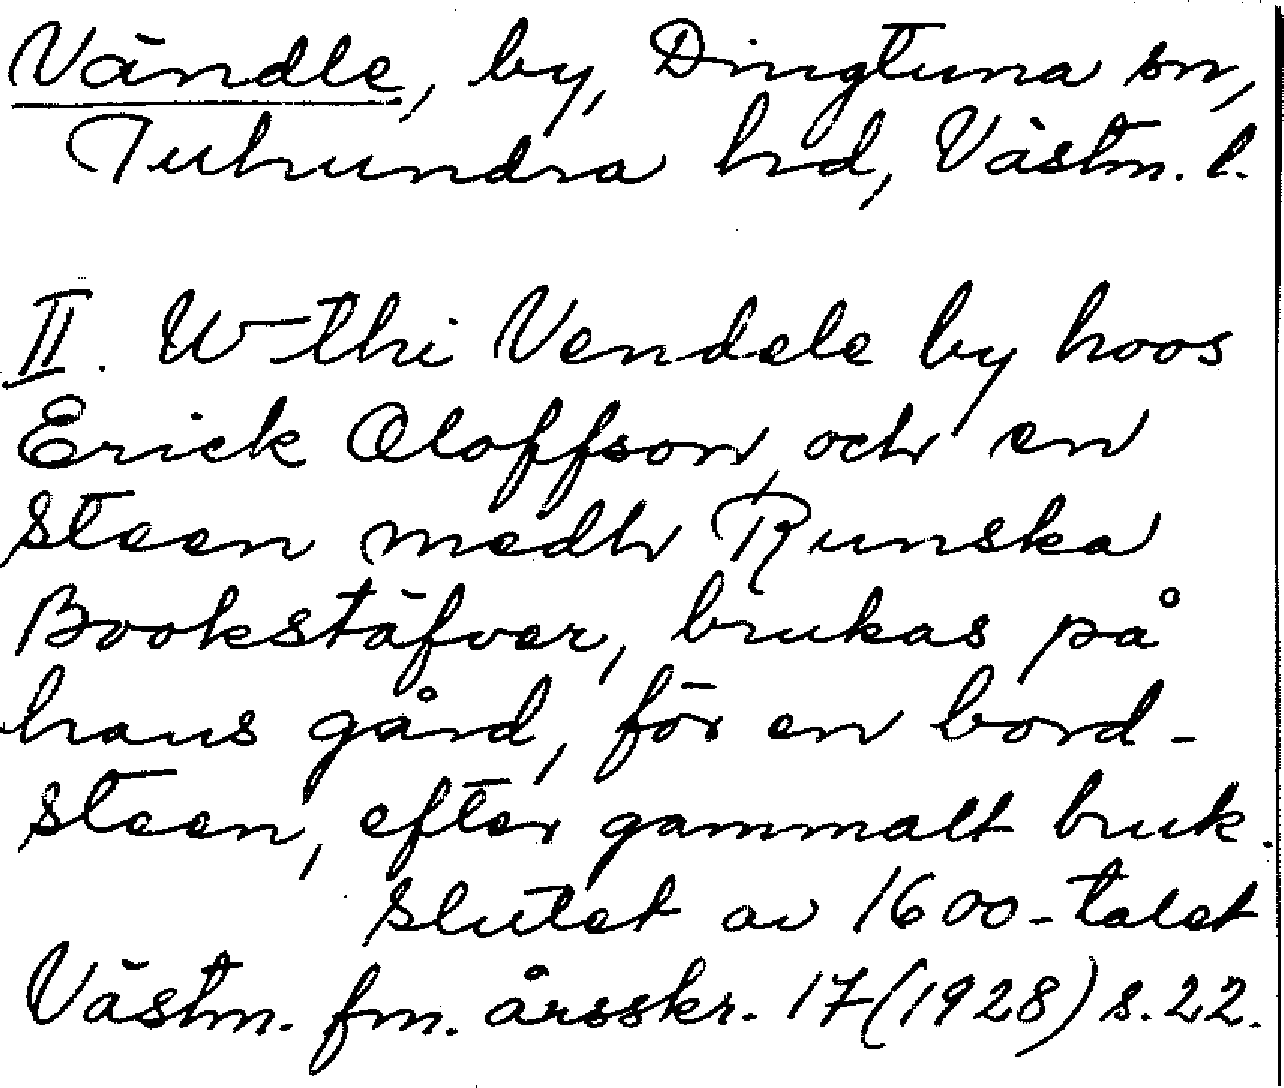 Vändle, by, Dingtuna sn,
Tuhundra hrd, Västm. l.
II. Uthi Vendele by hoos
Erick Oloffson, och en
steen medh Runska
Bookstäfver, brukas på
hans gård, för en bord-
steen, efter gammalt bruk.
slutet av 1600-talet
Västm. fm. årsskr. 17 (1928) s. 22.